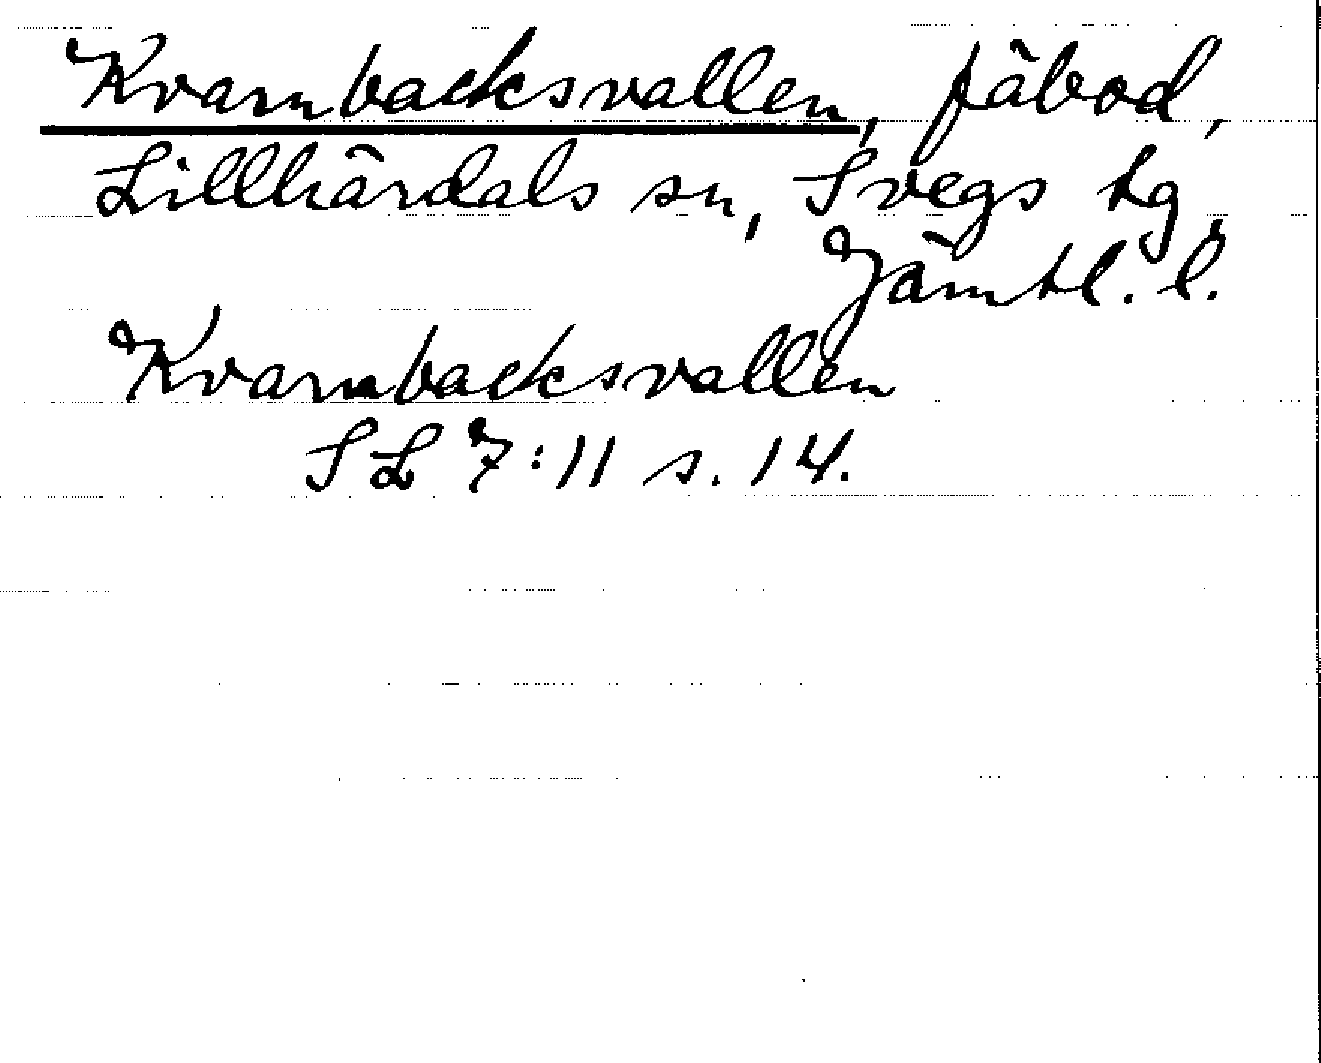 Kvarnbacksvallen, fäbod,
Lillhärdals sn, Svegs tg,
Jämtl. l.
Kvarnbacksvallen
SL 7:11 s. 14.